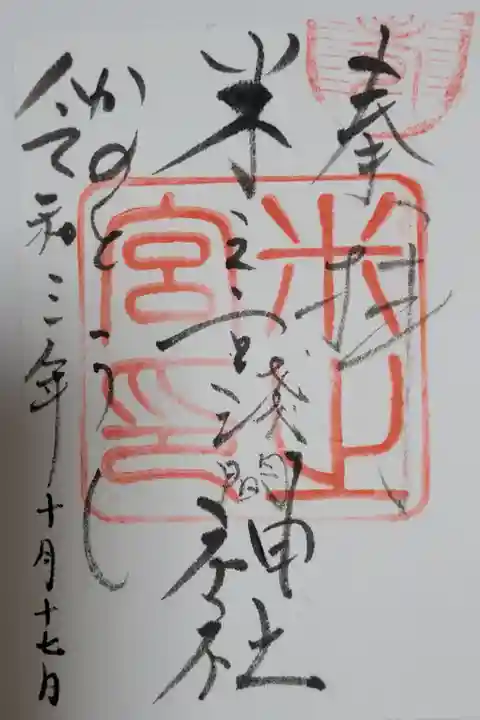 奉拝
米之宮浅間神社
かのとうし
令和三年十月十七日
米之宮印